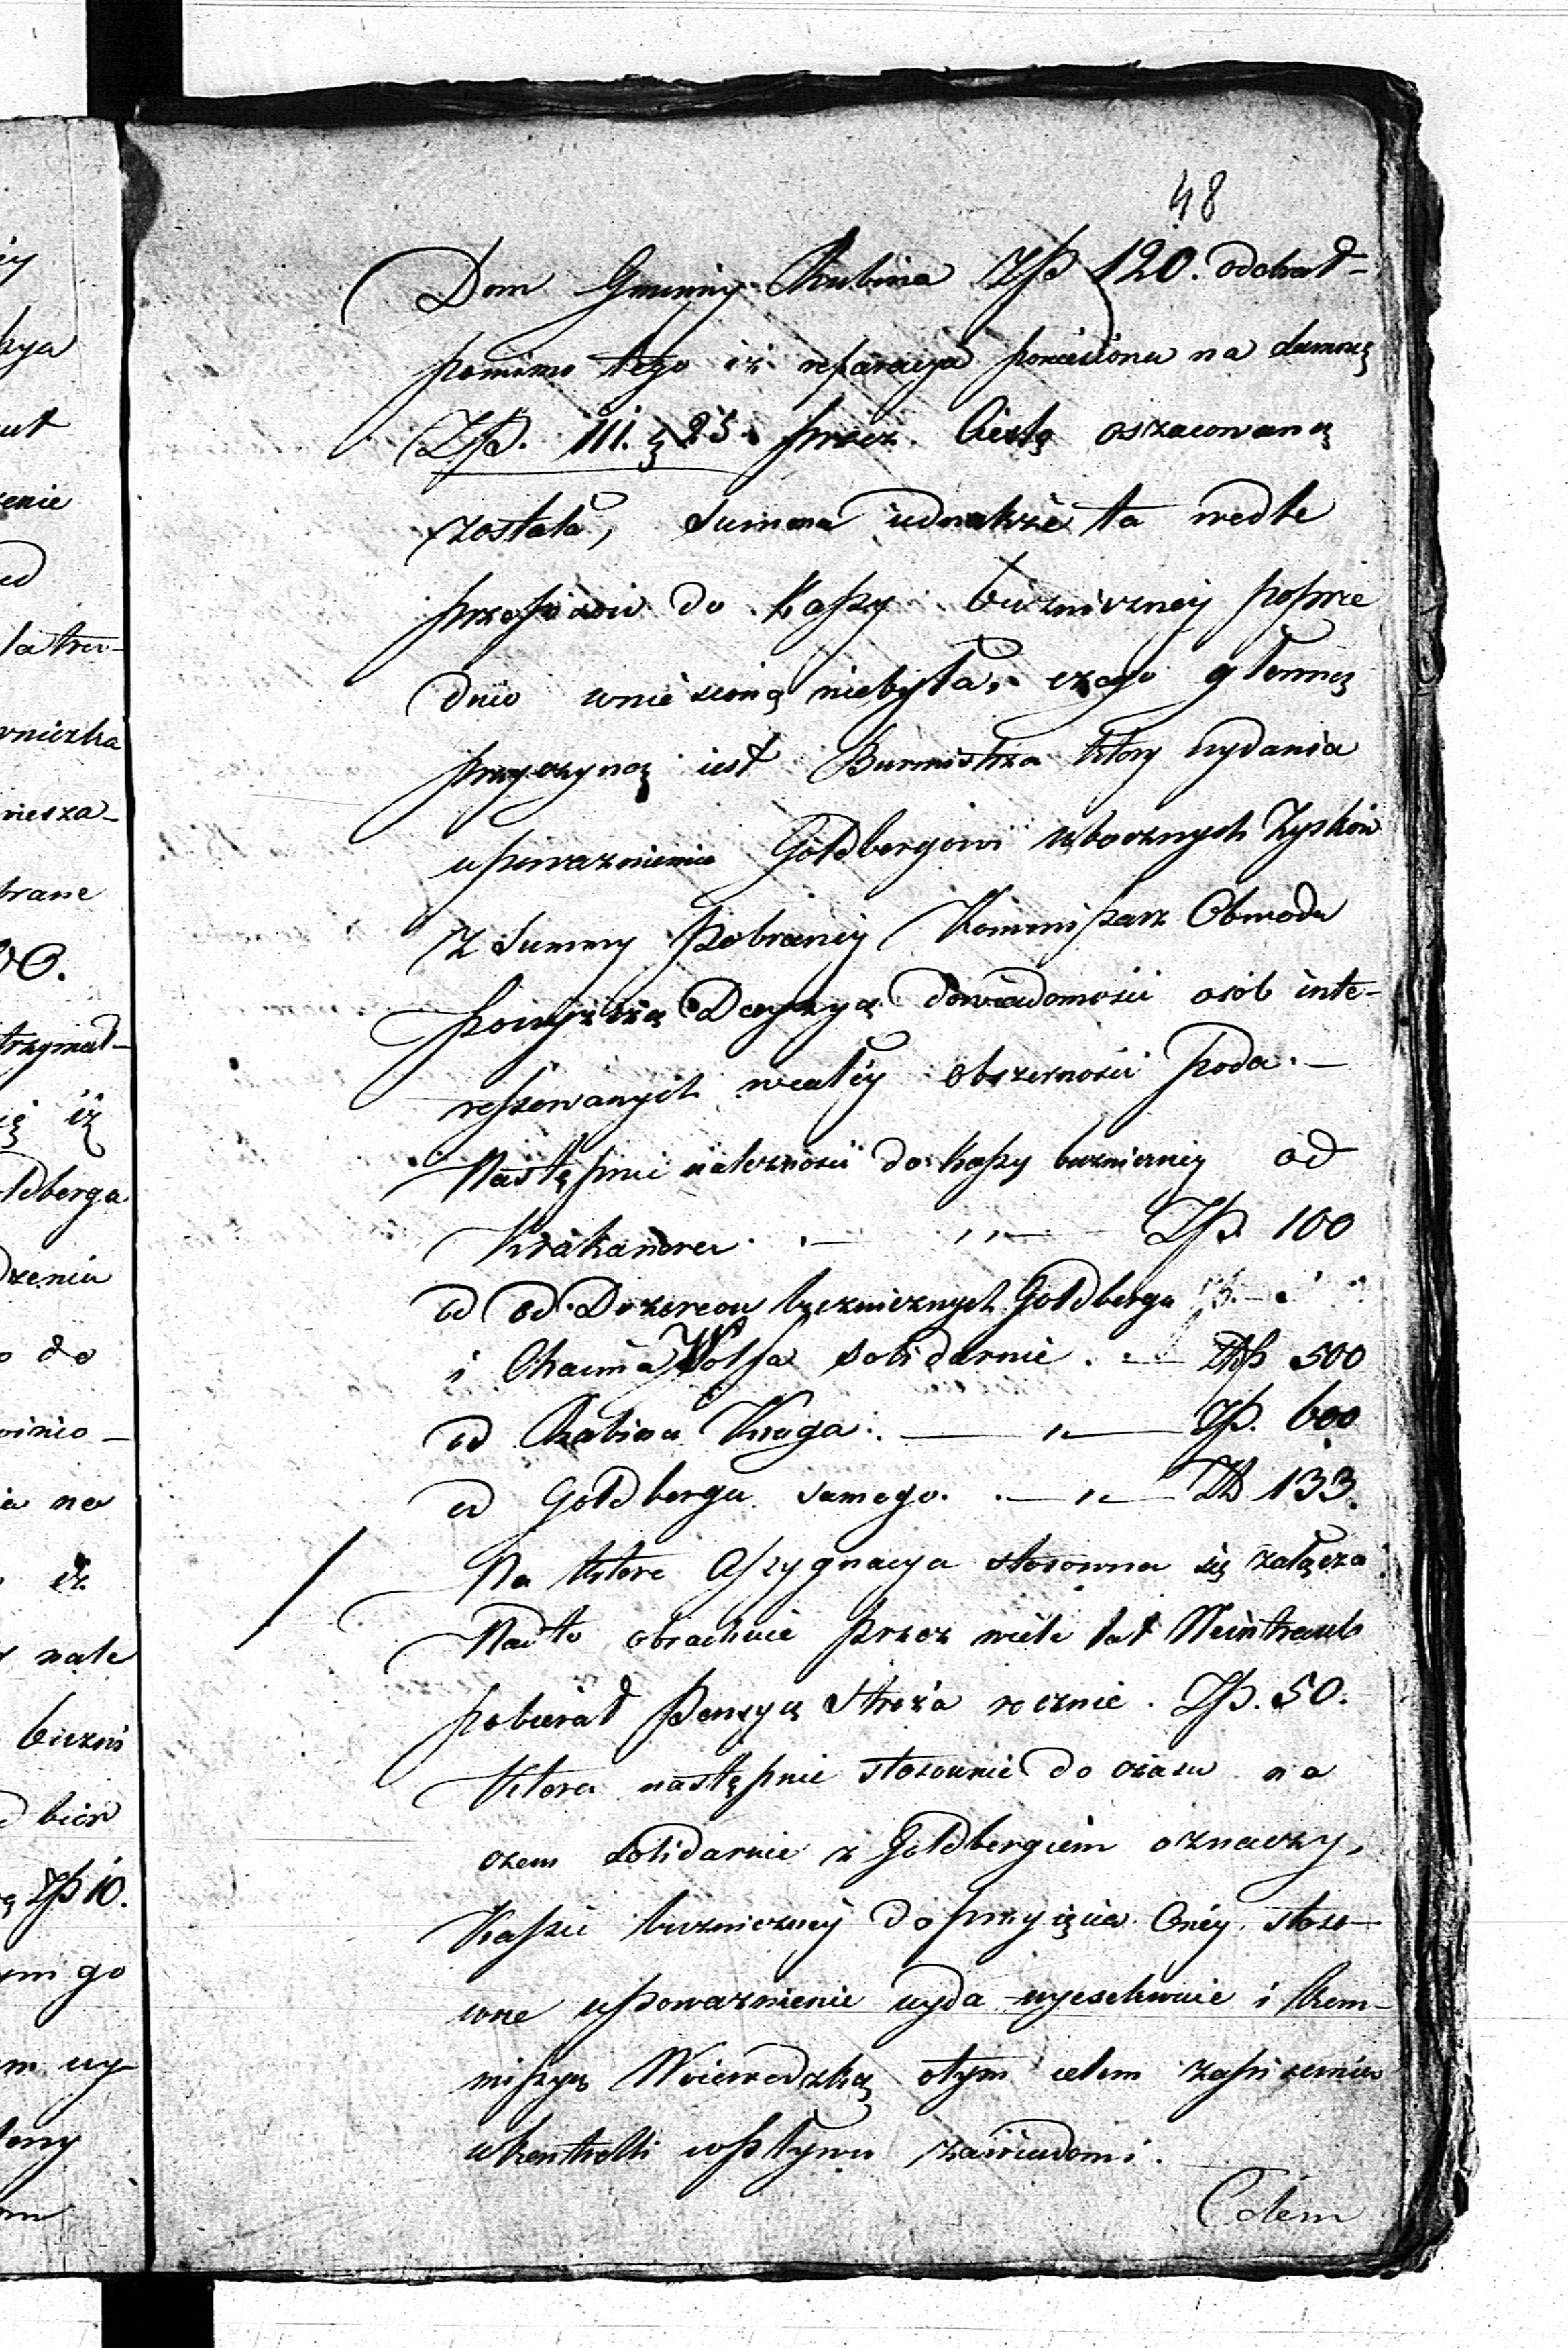 48
Dom Gminny Rubina Złp 120. odebrał-
pomimo tego iż reparacya poniesiona na
Złp. 111. g 25. przez Cieslę oszacowaną
została, Summa iednakże ta wedle
przepisów do Kassy bużniczney poprze
dnio wniesioną niebyła, czego główną
przyczyną iest Burmistrza który wydania
upoważnienia Goldbergowi ubocznych Zysków
z Summy pobraney Kommissarz Obwodu
powyższą Decyzyą dowiadomości osób inte-
ressowanych wcałey obszerności poda. —
Następnie należności do kassy bużniczney od
Krakauera . — „ — Złp. 100
od od Dozorców bużnicznych Goldberga
i Chaima Wolfa solidarnie . — Złp 500
od Rabina Kruga . — „ — Złp. 600
od Goldberga samego . — „ — Zł 133.
Na które Assygnacya stosowna się załącza
Nadto obrachuie przez wiele lat Weintraub
pobierał Pensyą Stroża rocznie . Złp. 50.
Która następnie stosownie do czasu na
czem solidarnie z Goldbergiem oznaczy,
Kassie bużniczney do przyięcia Oney stoso-
wne upoważnienie wyda wyexekwuie i Kom-
missyą Woiewodzką otym celem zapisania
wkontrolli wpływu zawiadomi.
Celem
ney
zya
enie
la trw-
wniczka
miesza-
brane
00.
trzymał-
ię iż
oldberga
dzeniu
o do
winio-
ia na
iż
nale
bużni
d bior
Złp 10.
ym go
m wy-